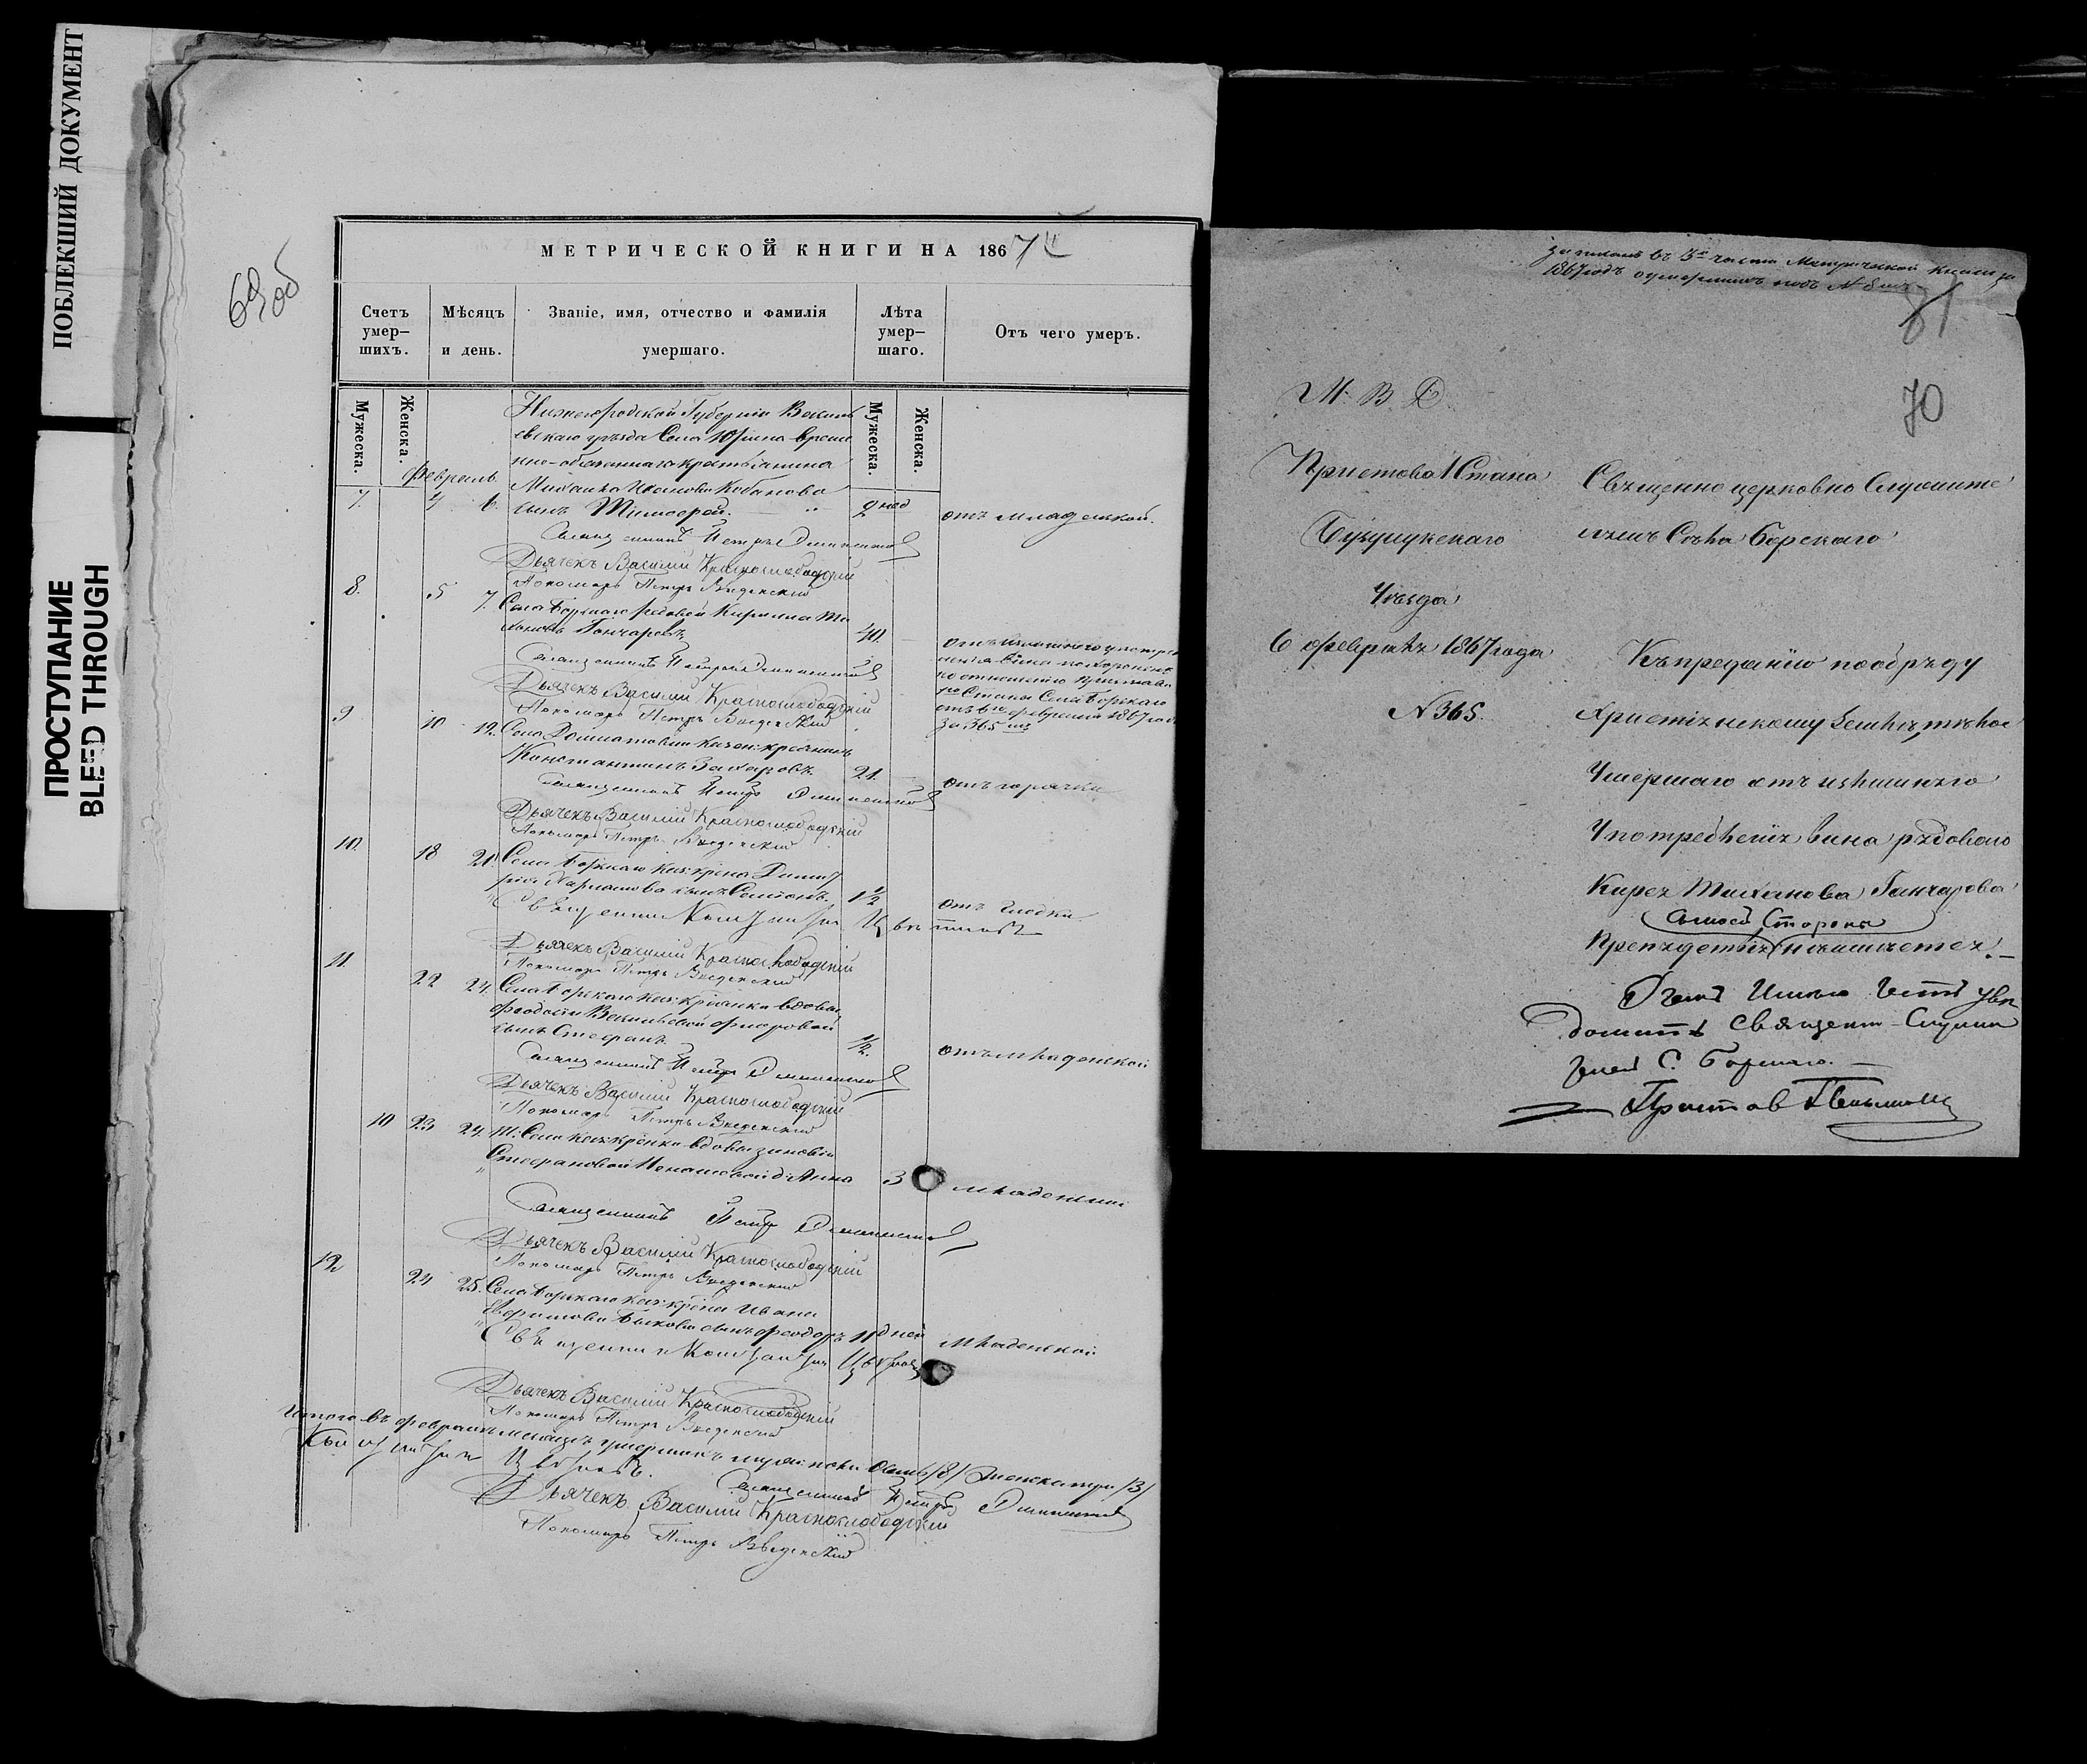 ПОБЛЕКШИЙ ДОКУМЕНТ
ПРОСТУПАНИЕ
BLEED THROUGH
69 об
МЕТРИЧЕСКОЙ КНИГИ НА 1867
Счетъ умер-шихъ.
Мѣсяцъ и день.
Званіе, имя, отчество и фамилія умершаго.
Лѣта умер-шаго.
Отъ чего умеръ.
Мужеска.
Женска.
Мужеска.
Женска.
Февраль
Нижегородской Губерніи Василь
евскаго уѣзда Села Юрина време
нно-обязаннаго крестьянина
Михаила Иванова Кабанова
7. 4 6. сынъ Тимофей. 2 нед отъ младенской.
Священникъ Петръ
Дьячекъ Василій Краснослободскій
Пономарь Петръ Введенскій
8. 5 7. Села Борскаго рядовой Кирилла Ти
хоновъ Гончаровъ 40. отъ излишняго употре
бленія вина похороненъ
по отношенію пристава
1го Стана Села Борскаго
отъ 6го февраля 1867 года
за 365 мъ
Священникъ Петръ
Дьячекъ Василій Краснослободскій
Пономарь Петръ Введенскій
9 10 12. Села каз: крестьянинъ
Константинъ Захаровъ. 21. отъ горячки
Священникъ Петръ
Дьячекъ Василій Краснослободскій
Пономарь Петръ Введенскій
10. 18 20. Села Борскаго каз: крена Дмит
рія сынъ 1½ отъ
Священникъ
Дьячекъ Василій Краснослободскій
Пономарь Петръ Введенскій
11. 22 24. Села Борскаго каз: крестьянки вдовы
Феодосіи Васильевой
сынъ Стефанъ ½. отъ младенской
Священникъ Петръ
Дьячекъ Василій Краснослободскій
Пономарь Петръ Введенскій
10 23 24. Т: Села каз: крестьянки вдовы Зиновіи
Стефановой д: Анна 3 младенской
Священникъ Петръ
Дьячекъ Василій Краснослободскій
Пономарь Петръ Введенскій
12 24 25. Села Борскаго каз: крена Ивана
Быкова сынъ Феодоръ 11 дней младенской
Священникъ
Дьячекъ Василій Краснослободскій
Пономарь Петръ Введенскій
Итого въ февралѣ мѣсяцѣ умершихъ мужеска осмь /8/ женска три /3/
Священникъ Петръ
Дьячекъ Василій Краснослободскій
Пономарь Петръ Введенскій
записанъ въ 3й части Метрической книги за
1867 годъ о умершихъ подъ № 8 мъ
81
70
М. В. Д.
Пристава 1 Стана
Бузулукскаго
Уѣзда
6 февраля 1867 года
№ 365.
Священно церковно Служите
лямъ Села Борскаго
Къ преданію по обряду
Христіянскому земли, тѣло
Умершаго отъ излишняго
Употребленія вина рядоваго
Кирея Тиханова Ганчарова
съ моей Стороны
Препядствія не имеется. —
О чемъ Имею Честь уве
домить священно-Служи
телей С. Борскаго. —
Приставъ